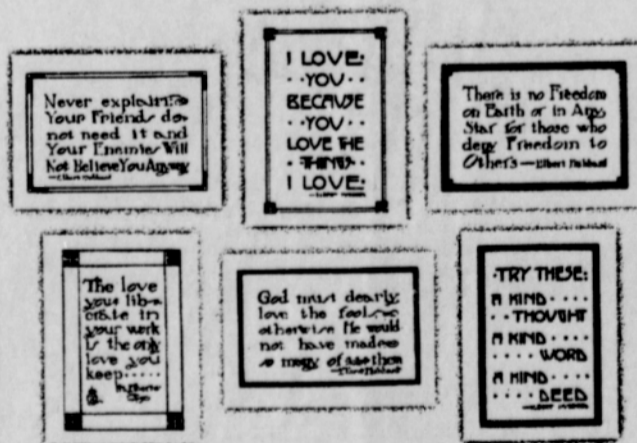 Never explain
Your Friends do
not need it and
Your Enemies Will
Not Believe You Anyway
—Elbert Hubbard
I LOVE
YOU
BECAUSE
YOU
LOVE THE
THINGS
I LOVE
There is no Freedom
on Earth or in Any
Star for those who
deny Freedom to
Others—Elbert Hubbard
The love
you liberate
in
your work
is the only
love you
keep
God must dearly
love the fools
otherwise He would
not have made
so many of them
—Elbert Hubbard
TRY THESE:
A KIND
THOUGHT
A KIND
WORD
A KIND
DEED